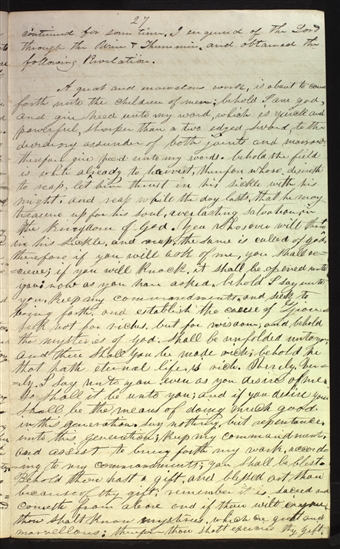 27
continued for some time, I enquired of the Lord
through the Urim & Thummim, and obtained the
following Revelation.
A great and marvelous work, is about to come
forth unto the children of men; behold I am god,
and give heed unto my word, which is quick and
powerful, sharper than a two edged sword, to the
dividing assunder of both joints and marrow;
therefore give heed unto my words. behold the field
is white already to harvest, therefore whoso, desireth
to reap, let him thrust in his sickle with his
might, and reap while the day lasts, that he may
treasure up for his soul, everlasting salvation, in
the kingdom of God. Yea whosoever will thrust
in his sickle, and reap, the same is called of god,
therefore if you will ask of me, you shall re-
ceive; if you will knock, it shall be opened unto
you; now as you have asked, behold I say unto
you, keep my commandments, and seek to
bring forth, and establish the cause of Zion;
seek not for riches, but for wisdom; and, behold
the mysteries of god, shall be unfolded unto you,
and then shall you be made rich; behold he
that hath eternal life, is rich. Verily, ve-
rily, I say unto you even as you desire of me,
so shall it be unto you; and if you desire you
shall be the means of doing much good
in this generation. Say nothing, but repentance
unto this, generation; keep my commandments,
and assist to bring forth my work, accord-
ing to my commandments, you shall be blest.
Behold thou hast a gift, and blessed art thou
because of thy gift, remember it is sacred and
cometh from above and if thou wilt enquire
thou shalt know mysteries, which are great and
marvellous; therefore thou shalt exercise thy gift,